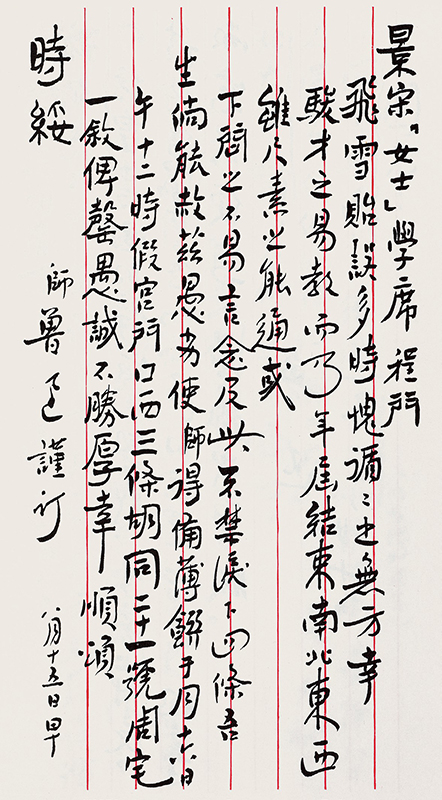 景宋「女士」學席 程門
飛雪貽誤多時愧循〻之無方幸
駿才之易教而乃年屆結束南北東西
雖尺素之能通或
下問之不易言念及此不禁淚下四條吾
生倘能赦茲愚劣使師得備薄饌于月十六日
午十二時假宮門口西三條胡同二十一號周宅
一敘俾罄愚誠不勝厚幸 順頌
時綏
師魯迅謹訂
八月十五日早